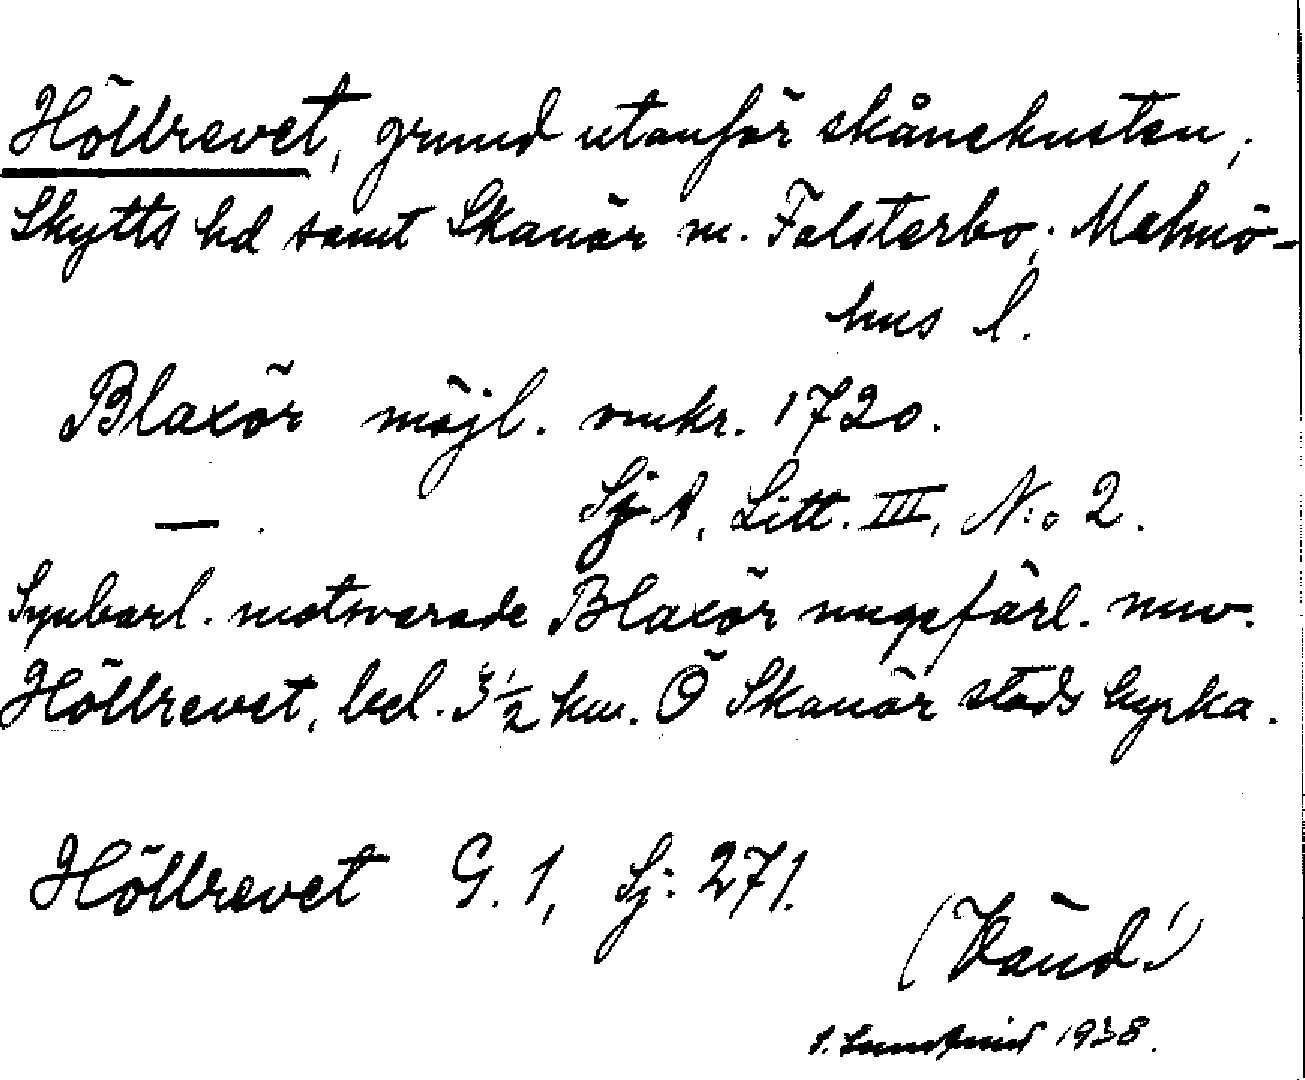 Höllrevet, grund utanför skånekusten;
Skytts hd samt Skanör m. Falsterbo; Malmö-
hus l.
Blaxör möjl. omkr. 1720.
— . SjA, Litt. III, N:o 2.
Synbarl. motsvarade Blaxör ungefärl. nuv.
Höllrevet, bel. 3 1/2 km. Ö Skanör stads kyrka.
Höllrevet G. 1, Sj: 271.
(Känd!)
1938.